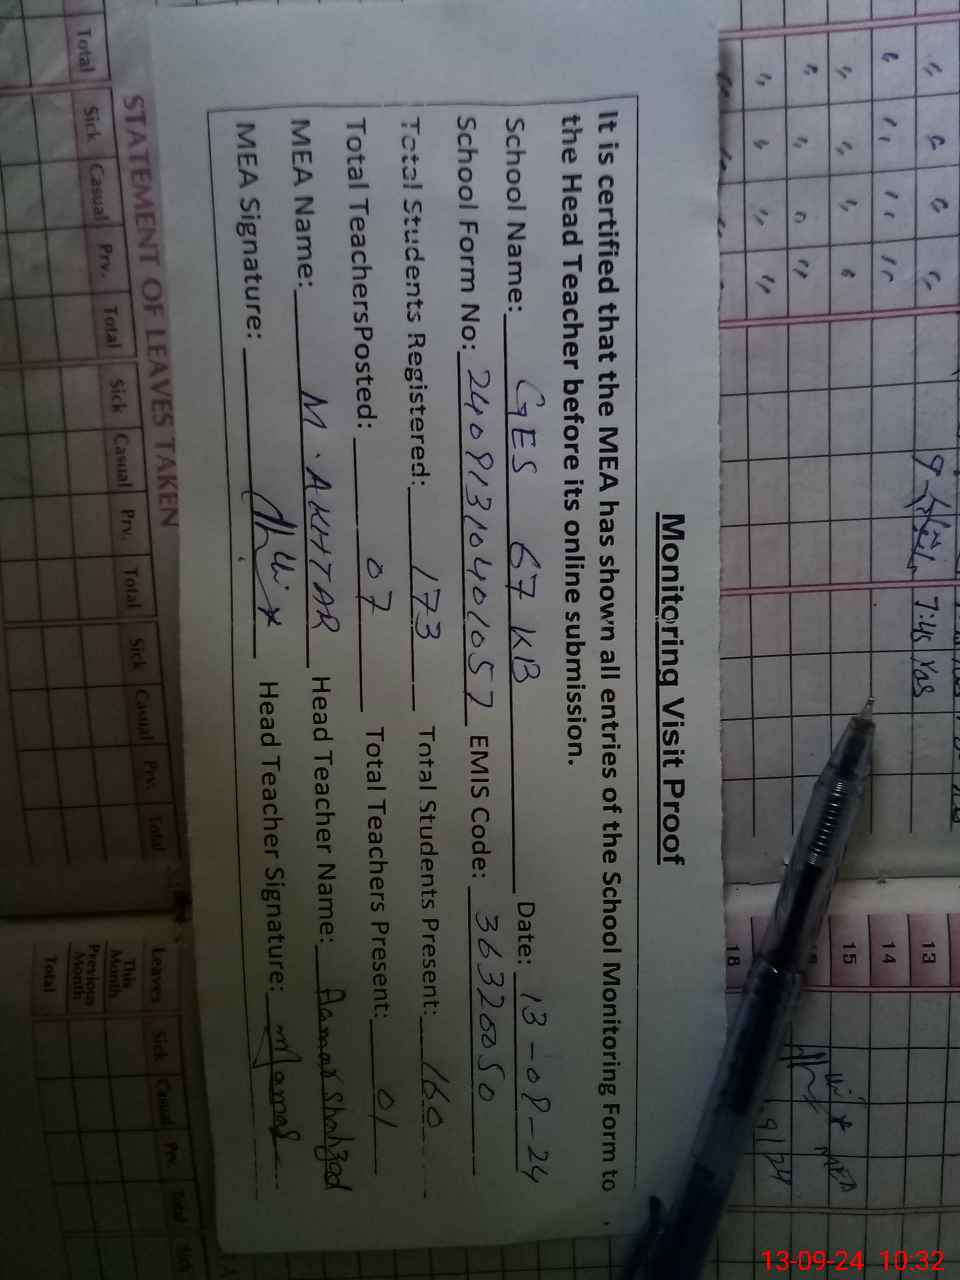 Monitoring Visit Proof
It is certified that the MEA has shown all entries of the School Monitoring Form to
the Head Teacher before its online submission.
School Name: GES 67 KB Date: 13-09-24
School Form No: 24091310401057 EMIS Code: 36320050
Total Students Registered: 173 Total Students Present: 160
Total TeachersPosted: 07 Total Teachers Present: 01
MEA Name: M. AKHTAR Head Teacher Name: Shahzad
MEA Signature: Head Teacher Signature:
STATEMENT OF LEAVES TAKEN
Total Sick Casual Prv. Total Sick Casual Prv. Total Sick Casual Prv. Total
Leaves Sick Casual Prv. Total Sick
This Month
Previous Month
Total
13
14
15
18
7:45
MEA
9/24
13-09-24 10:32